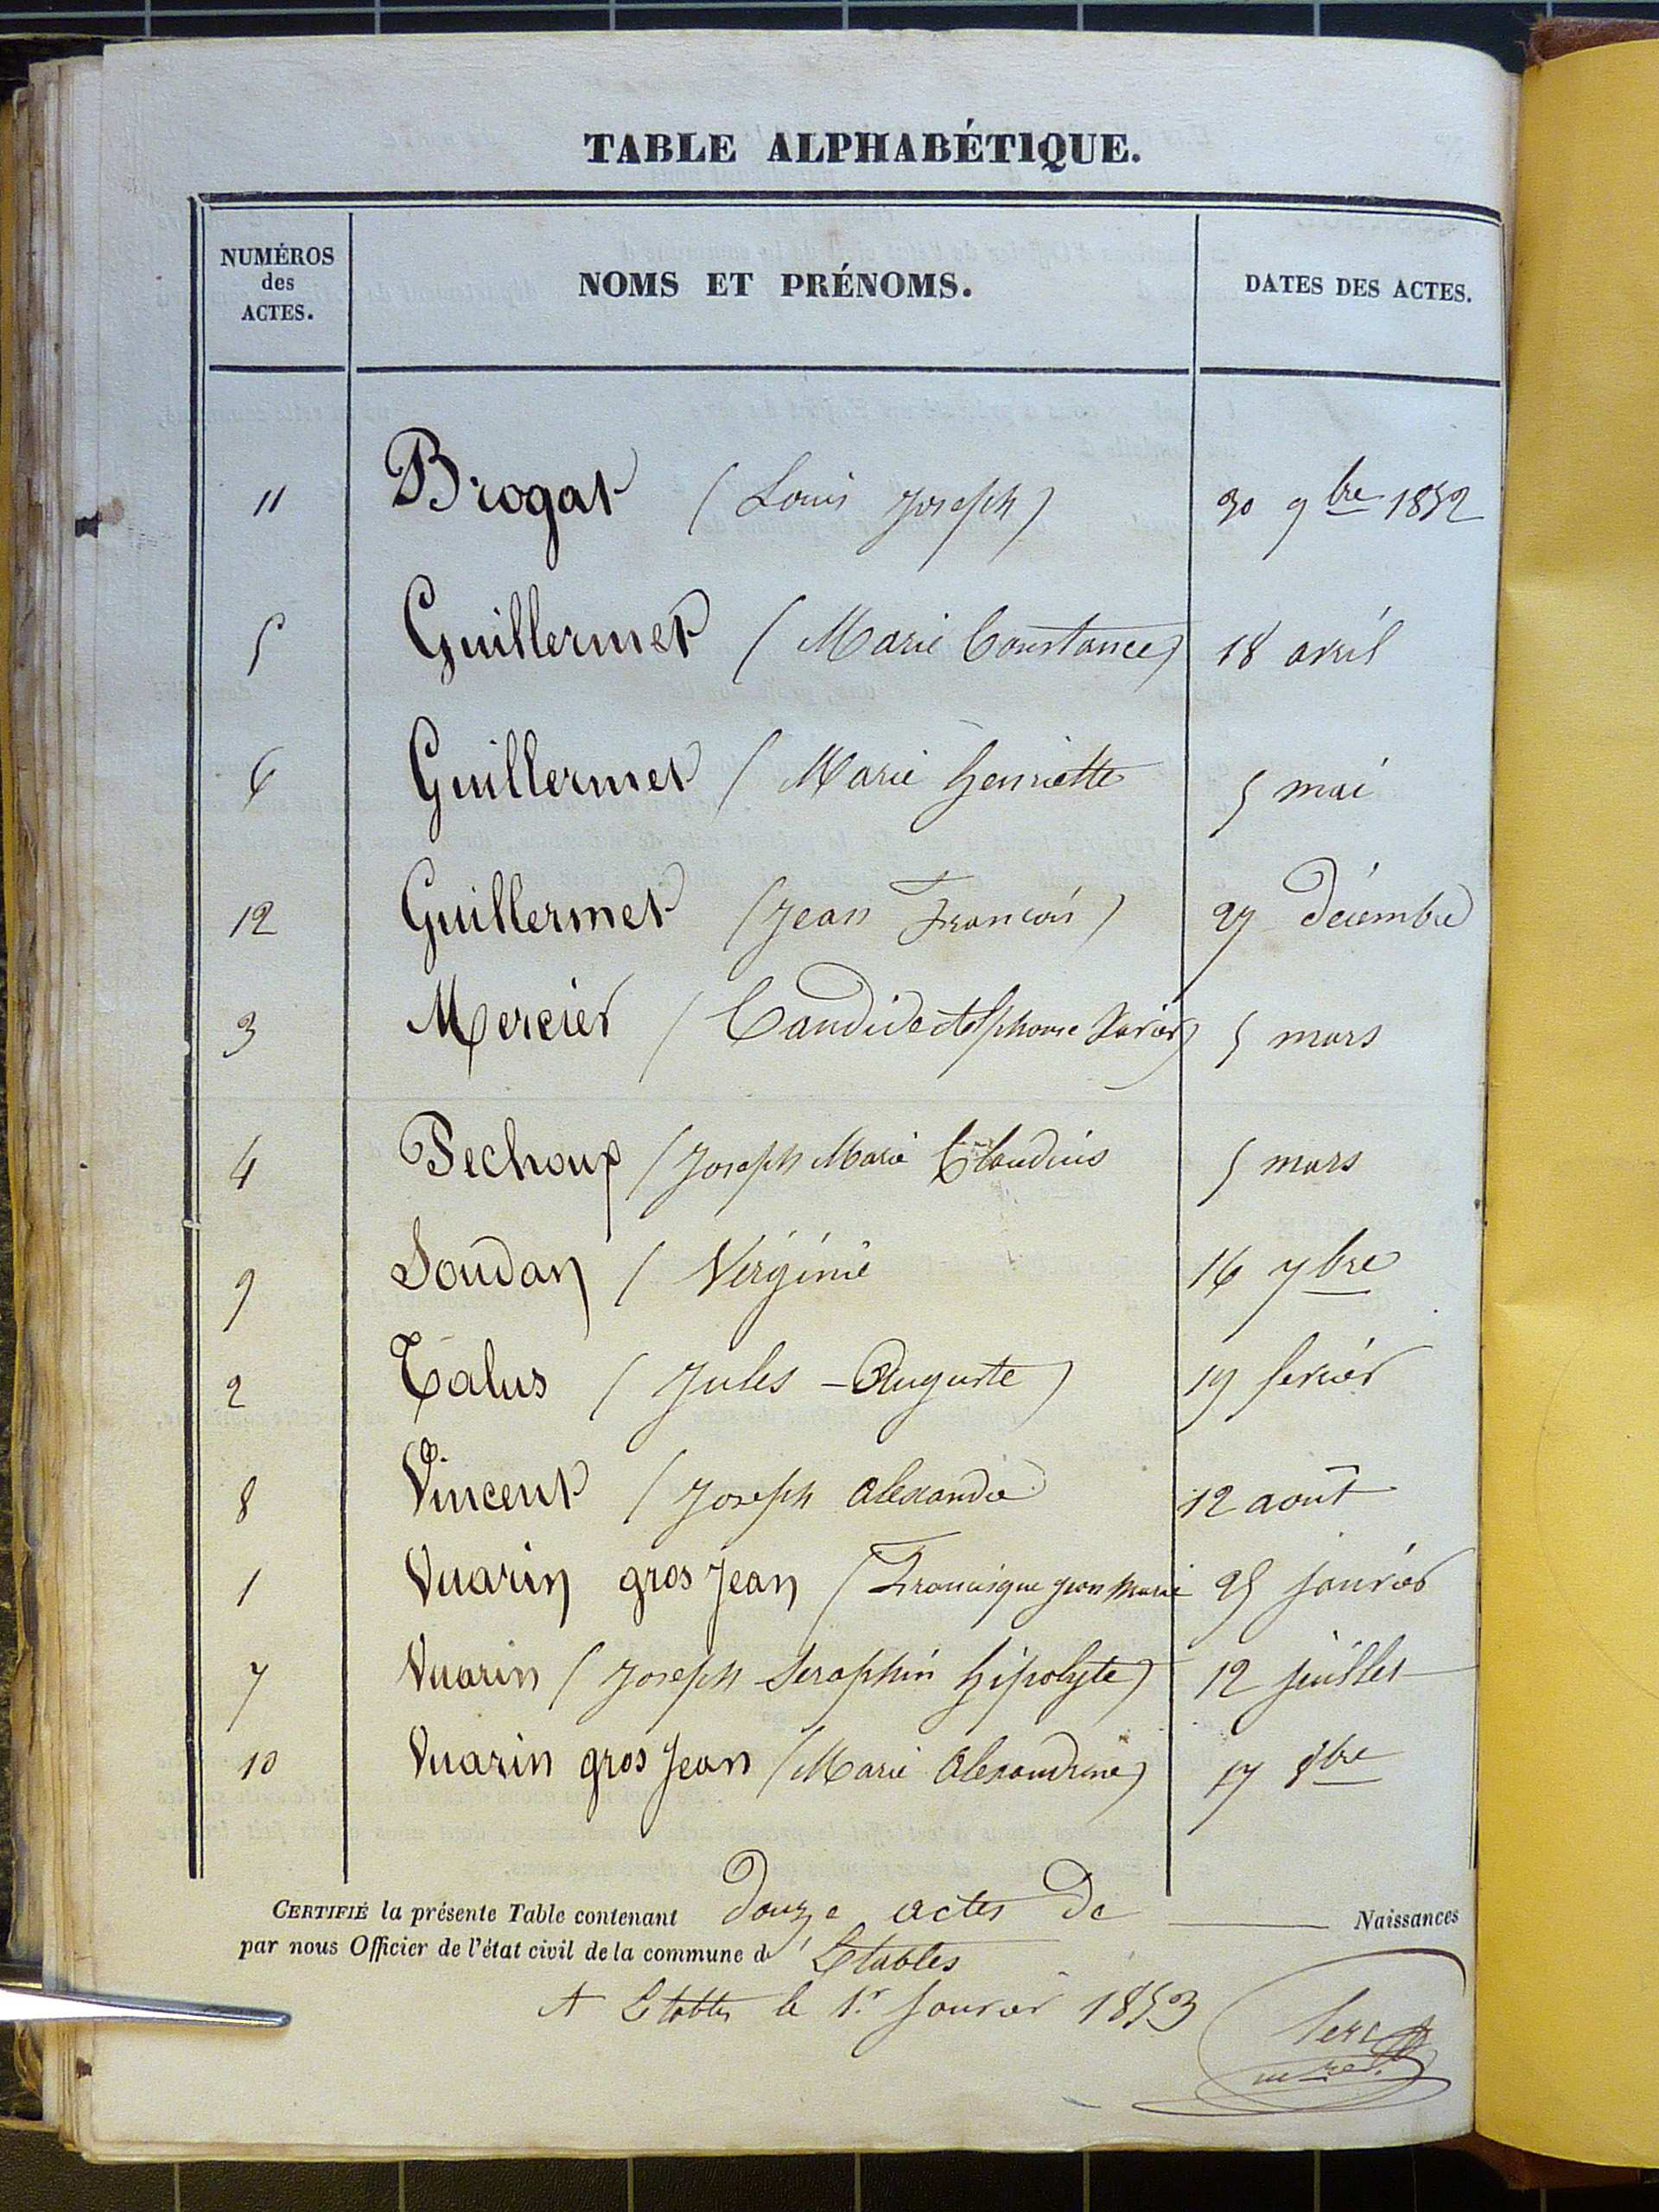 TABLE ALPHABÉTIQUE.
NUMÉROS des ACTES. NOMS ET PRÉNOMS. DATES DES ACTES.
11 Brogat (Louis Joseph) 30 9bre 1852
5 Guillermet (Marie Constance) 18 avril
6 Guillermet (Marie henriette 5 mai
12 Guillermet (Jean François) 27 décembre
3 Mercier (Candide Alphonse Xavier) 5 mars
4 Pechoux (Joseph Marie Claudius 5 mars
9 Soudan (Vérginie 16 7bre
2 Talus (Jules Auguste) 19 fevrier
8 Vincent (Joseph alexandre 12 août
1 Vuarin gros Jean (Francisque jean marie 25 janvier
7 Vuarin (Joseph Seraphin hipolyte) 12 juillet
10 Vuarin gros Jean (Marie Alexandrine) 17 8bre
CERTIFIÉ la présente Table contenant douze actes de Naissances
par nous Officier de l'état civil de la commune d'Etables
A Etables le 1.r janvier 1853